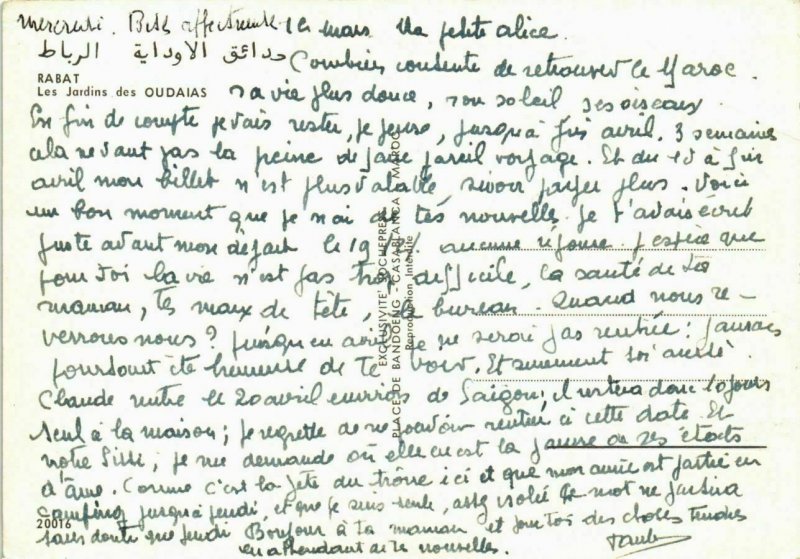 mercredi. Bises affectueuses 1er mars. Ma petite Alice.
حدائق الاوداية الرباط
Combien contente de retrouver le Maroc.
RABAT
Les Jardins des OUDAIAS
sa vie plus douce, son soleil ses oiseaux
En fin de compte je vais rester, je pense, jusqu'à fin avril. 3 semaines
cela ne vaut pas la peine de faire pareil voyage. Et du 15 à fin
avril mon billet n'est plus valable, sinon payer plus. Voici
un bon moment que je n'ai de tes nouvelles. Je t'avais écrit
juste avant mon départ le 19 aucune réponse. J'espère que
pour toi la vie n'est pas trop difficile, la santé de ta
maman, tes maux de tête, le bureau. Quand nous re-
verrons nous? Jusqu'en avril je ne serai pas rentrée: j'aurais
pourtant été heureuse de te voir. Et
Claude rentre le 20 avril environ de Saigon; il restera donc 10 jours
seul à la maison; je regrette de ne pouvoir rentrer à cette date. Et
notre Sissi, je me demande où elle en est la pauvre de ses états
d'âme. Comme c'est la fête du trône ici et que mon amie est partie en
camping jusqu'à jeudi, et que je suis seule, assez isolée ce mot ne partira
20016
sans doute que jeudi Bonjour à ta maman et pour toi des choses tendres
en attendant de tes nouvelles.
EXCLUSIVITE POCHEPRESS
PLACE DE BANDOENG - CASABLANCA - MAROC
Reproduction Interdite